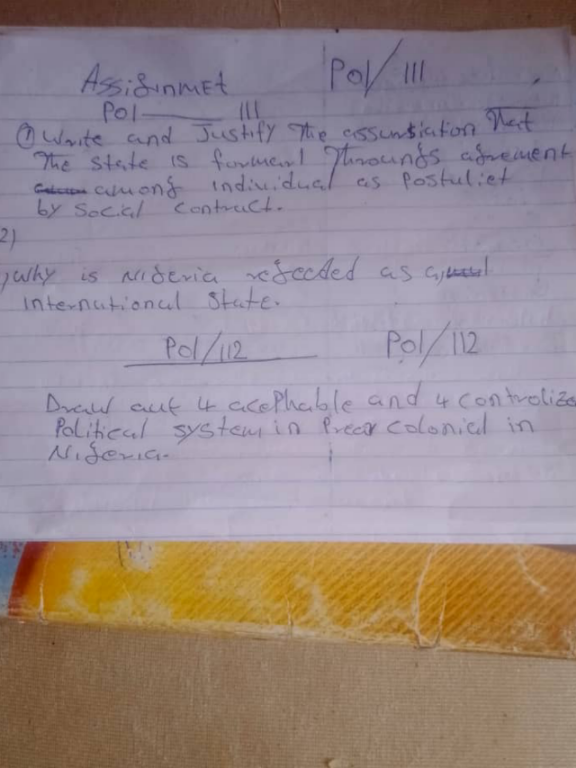 Assignmet
Pol/111
Pol 111
① Write and Justify The assunsiation That
The state is formart Throungs agreement
among individual as Postuliet
by Social Contract.
2)
, Why is Nigeria refected as a,
International State.
Pol/112
Pol/112
Draw aut 4 acephable and 4 controlize
Political system in Precolonial in
Nigeria.